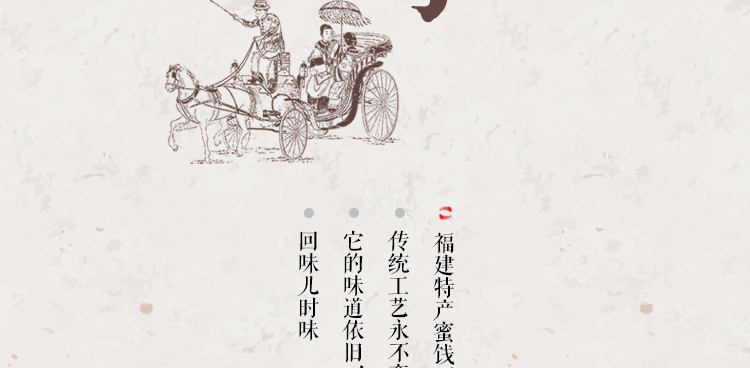 福建特产蜜饯
传统工艺永不
它的味道依旧，
回味儿时味